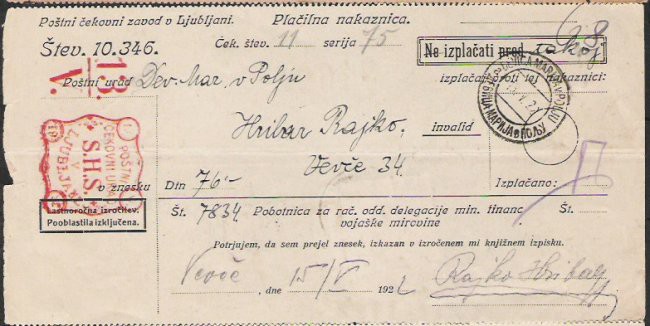 Poštni čekovni zavod v Ljubljani. Plačilna nakaznica.
Štev. 10.346. Ček. štev. 11 serija 75
Ne izplačati pred takoj
13. V.
Poštni urad Dev. Mar. v Polju izplačaj proti tej nakaznici:
Hribar Rajko, invalid
Vevče 34.
POŠTNI ČEKOVNI URAD
S.H.S.
V LJUBLJANI
v znesku Din 76- Izplačano:
Lastnoročna izročitev.
Pooblastila izključena.
Št. 7834 Pobotnica za rač. odd. delegacije min. financ Št.
vojaške mirovine
Potrjujem, da sem prejel znesek, izkazan v izročenem mi knjižnem izpisku.
Vevče, dne 15/V 192
Rajko Hribar